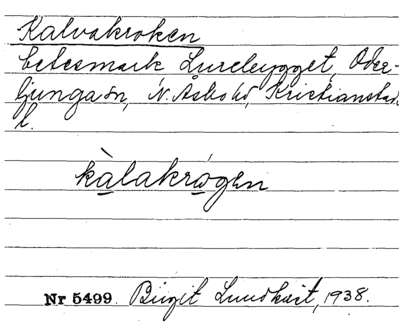 Kalvakroken
betesmark Lurebygget, Oder-
ljunga sn, N. Åsbo hd, Kristianstads
l.
kàlakrógen
Nr 5499 Birgit Lundkvist, 1938.